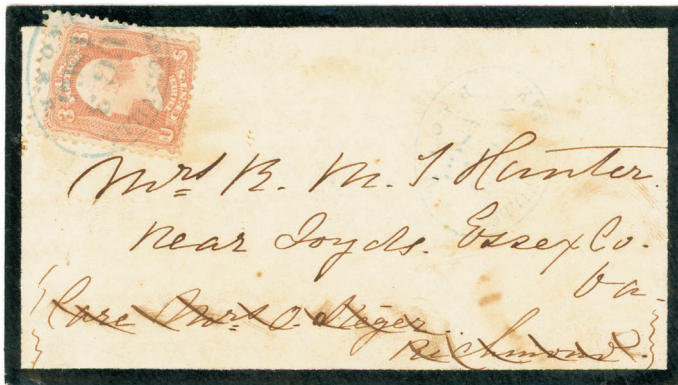 Mrs R. M. T. Hunter.
near Loyds. Essex Co.
Va.
Care Mrs O. Steger.
Richmond.